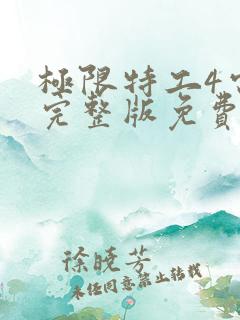 極限特工4
完整版免費
徐曉芳
未经同意禁止转载